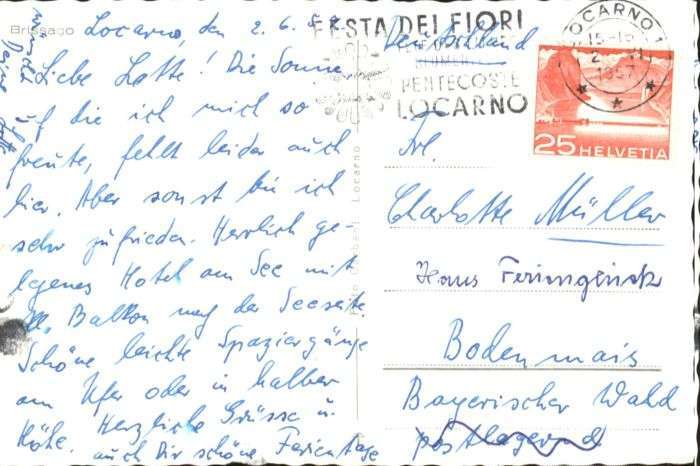 Brissago
Locarno, den 2.6.57
Liebe Lotte! Die Sonne
auf die ich mich so
freute, fehlt leider auch
hier. Aber sonst bin ich
sehr zufrieden. Herrlich ge-
legenes Hotel am See mit
Balkon nach der Seeseite
Schöne leichte Spaziergänge
am Ufer oder in halber
Höhe. Herzliche Grüsse u.
auch Dir schöne Ferientage
Locarno
FESTA DEI FIORI
PENTECOSTE
LOCARNO
LOCARNO 1
15-16
1957
25 HELVETIA
Deutschland
Frl.
Charlotte Müller
Haus Feriengenick
Bodenmais
Bayerischer Wald
postlagernd